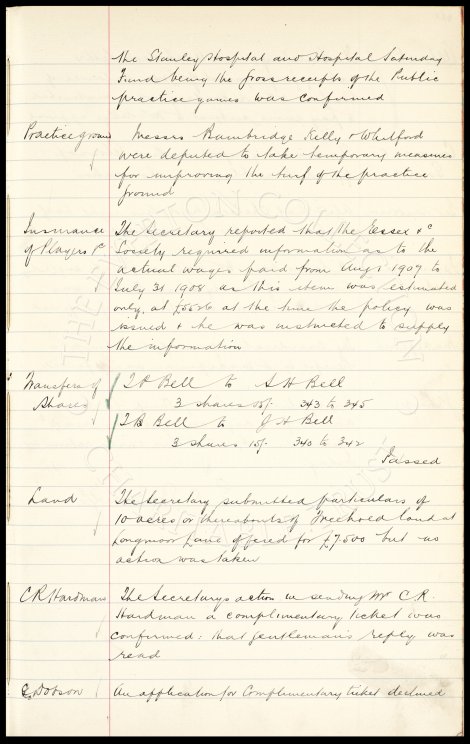 the Stanley Hospital and Hospital Saturday
Fund being the gross receipts of the Public
practice games was confirmed
Practice ground Messrs Bainbridge Kelly & Whitford
were deputed to take temporary measures
for improving the turf of the practice
ground
Insurance The Secretary reported that the Essex & c
of Players Society required information as to the
actual wages paid from Aug 1 1907 to
July 31 1908 as this item was estimated
only at £5526 at the time the policy was
issued & he was instructed to supply
the information
Transfers of Bell to S H Bell
Shares 3 shares 15/- 343 to 345
Bell to J H Bell
3 shares 15/- 340 to 342
Passed
Land The Secretary submitted particulars of
10 acres or thereabouts of Freehold land at
Longmoor Lane offered for £7500 but no
action was taken
C R Hardman The Secretarys action in sending Mr C. R.
Hardman a complimentary ticket was
confirmed: that gentleman's reply was
read
Dobson An application for Complimentary ticket declined